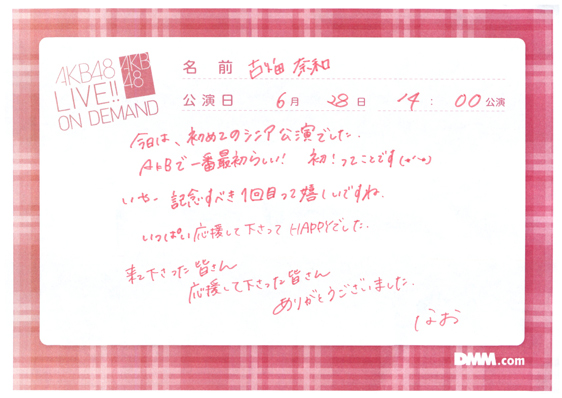 AKB48
LIVE!!
ON DEMAND
AKB
48
名 前 古畑 奈和
公演日 6月 28日 14:00公演
今日は、初めてのシニア公演でした.
AKBで一番最初らしい! 初!ってことです
いやー 記念すべき1回目って嬉しいですね.
いっぱい応援して下さって HAPPYでした.
来て下さった皆さん
応援して下さった皆さん
ありがとうございました.
なお
DMM.com